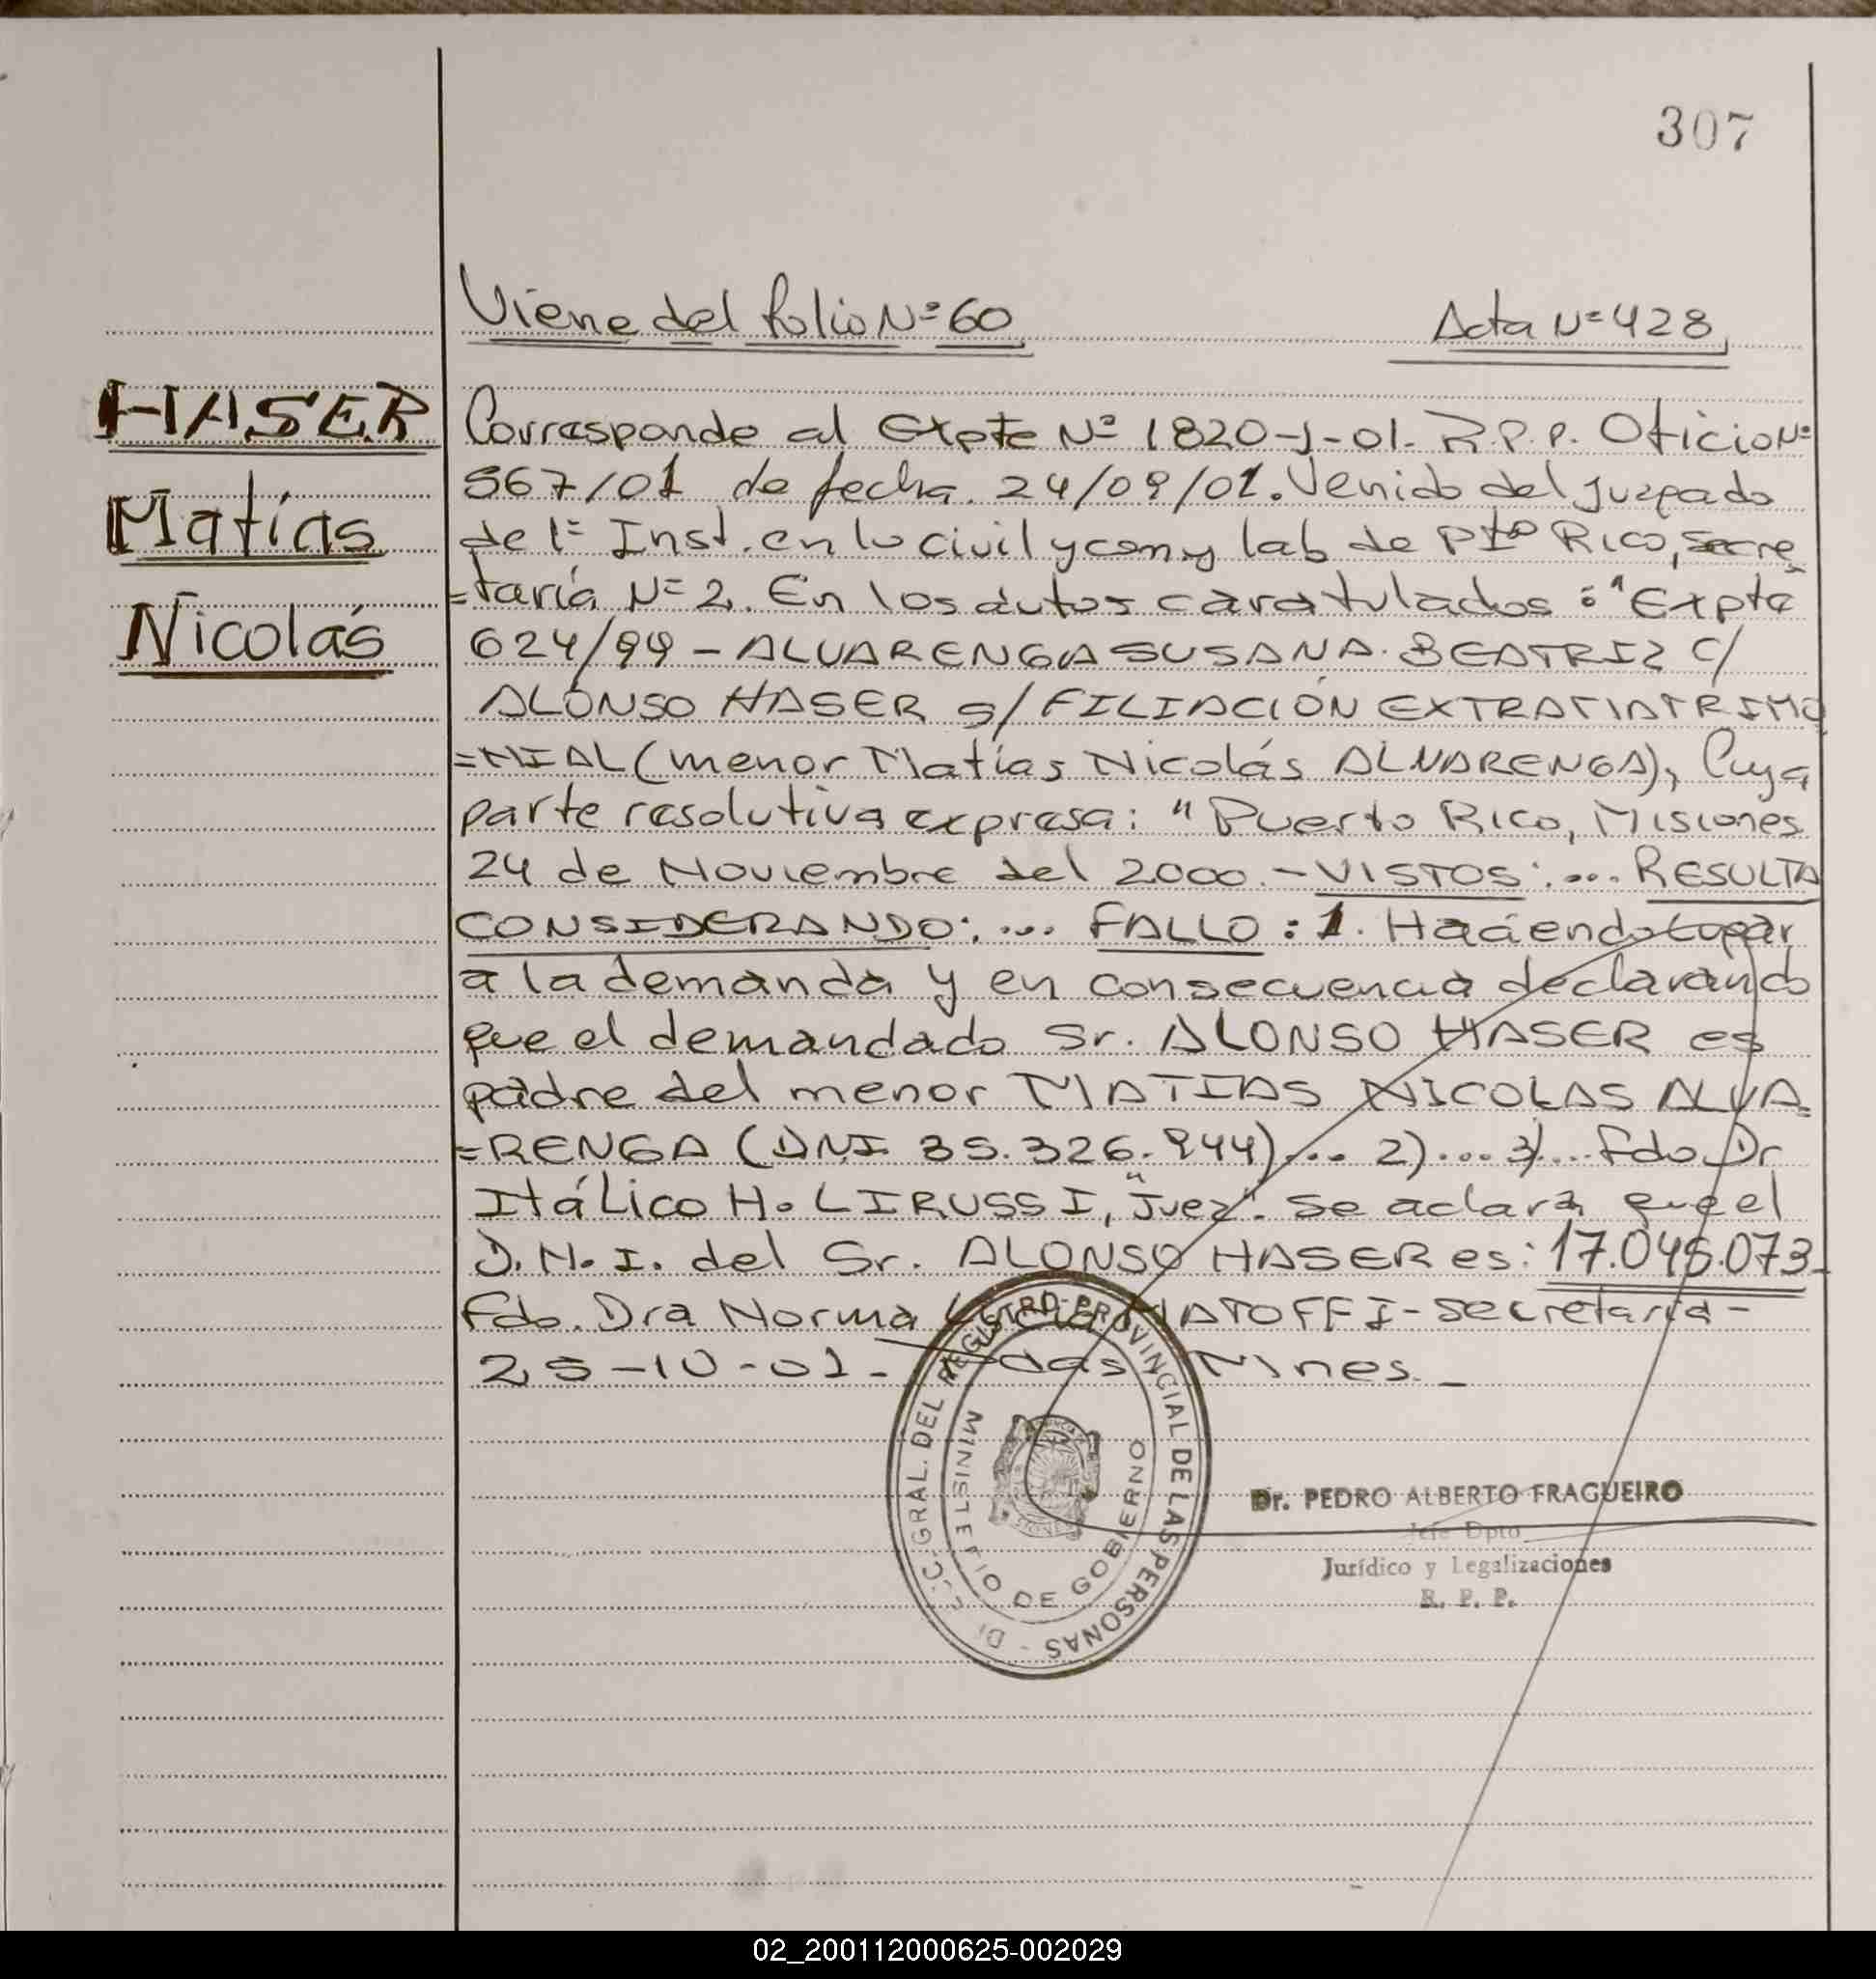 307
Viene del folio Nº 60
Acta Nº 428
HASER
Matías
Nicolás
Corresponde al Expte Nº 1820-J-01- R.P.P. Oficio Nº
567/01 de fecha 24/09/01. Venido del Juzgado
de 1º Inst. en lo civil y com y lab de Pto Rico, secre
=taría Nº 2. En los autos caratulados : "Expte
624/99 - ALVARENGA SUSANA BEATRIZ C/
ALONSO HASER s/ FILIACIÓN EXTRAMATRIMO
=NIAL (menor Matías Nicolás ALVARENGA), Cuya
parte resolutiva expresa: "Puerto Rico, Misiones
24 de Noviembre del 2000.- VISTOS:.... RESULTA
CONSIDERANDO:.... FALLO : 1. Haciendo lugar
a la demanda y en consecuencia declarando
que el demandado Sr. ALONSO HASER es
padre del menor MATIAS NICOLAS ALVA
=RENGA (DNI 35.326.944)... 2).... 3).... Fdo Dr
Itálico H. LIRUSSI, "Juez". Se aclara que el
D.N.I. del Sr. ALONSO HASER es: 17.045.073-
Fdo. Dra Norma MATOFFI - Secretaria -
25-10-01-
DIRECC. GRAL. DEL REGISTRO PROVINCIAL DE LAS PERSONAS -
MINISTERIO DE GOBIERNO
Dr. PEDRO ALBERTO FRAGUEIRO
Jefe Dpto
Jurídico y Legalizaciones
R. P. P.
02_200112000625-002029